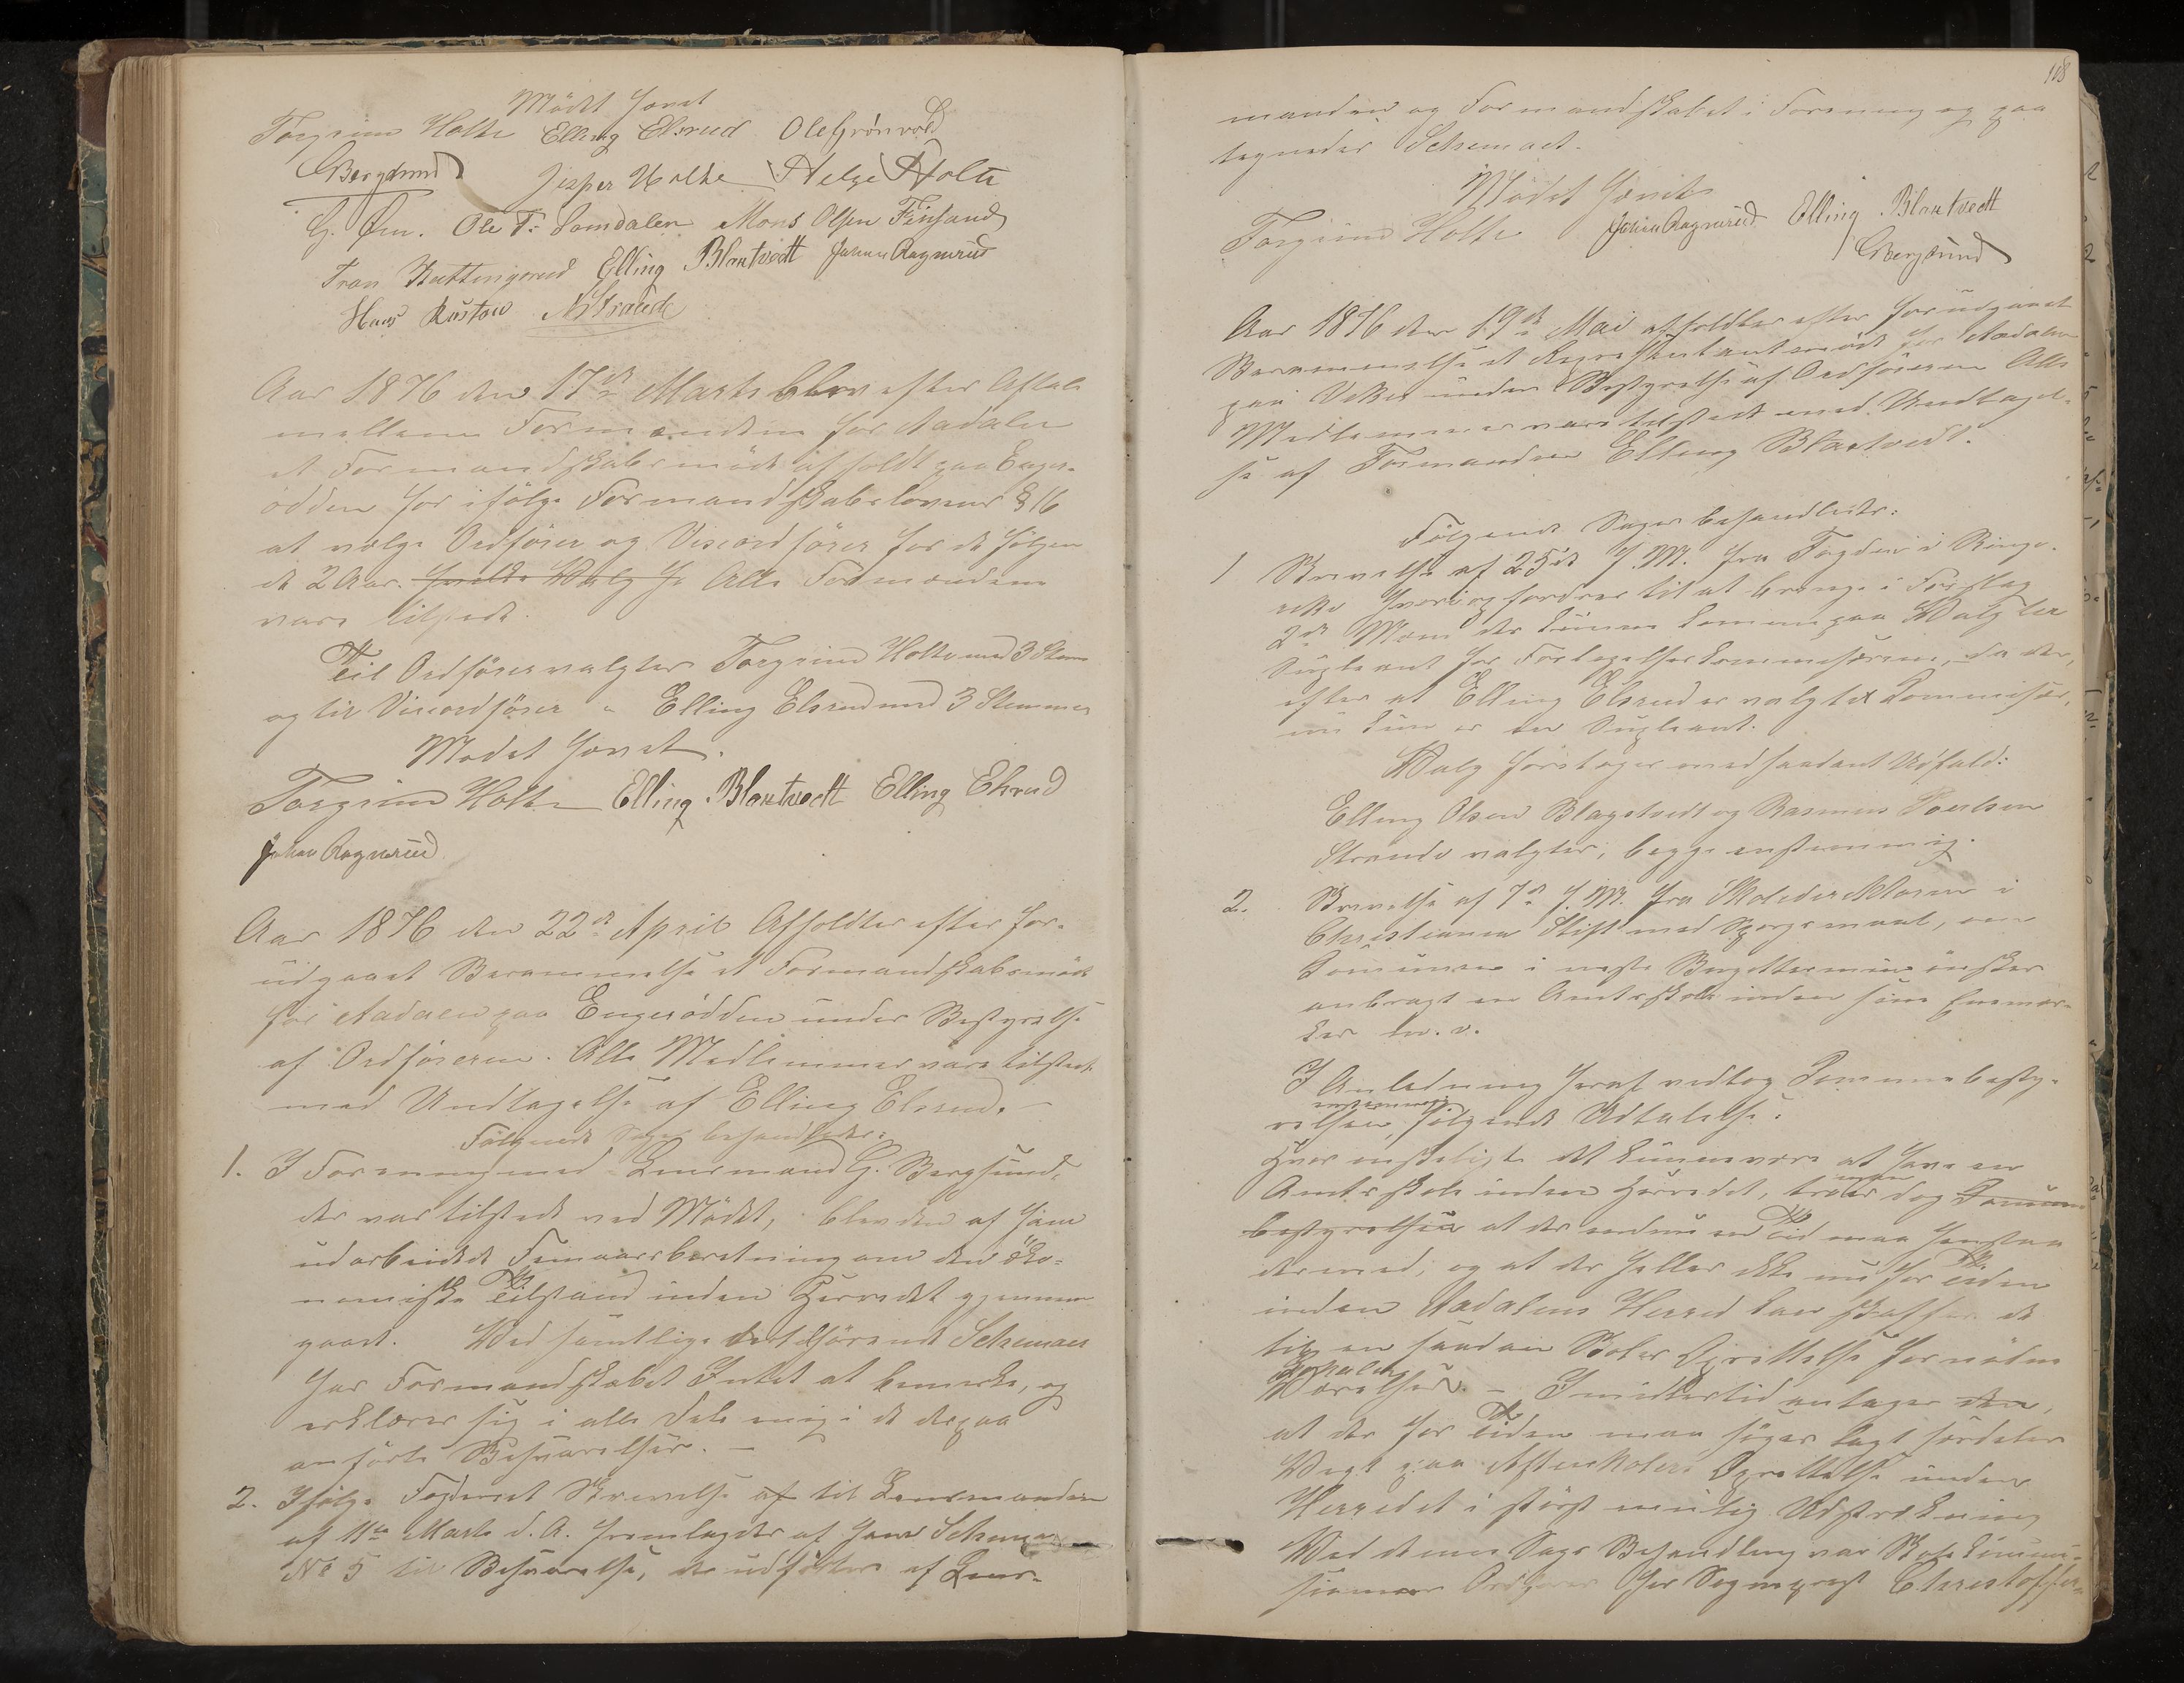 Mödet hævet
Torgrim Holte Elling Elsrud Ole Grönvold
GBergsund Jesper Holte Helge Holte
G. Øen. Ole T. Somdalen Mons Olsen Finsand
Iver Buttingsrud Elling Blaktvedt Johan Ragnerud
Hans Rustad NStrande
Aar 1876 den 17de Marts blev efter Aftale
mellem Formændene for Aadalen
et Formandskabsmöde afholdt paa Enger-
odden for ifölge Formandskabslovens § 16
at vælge Ordförer og Viceordförer for de fölgen
de 2 Aar. Alle Formændene
vare tilstede.
Til Ordförer valgtes Torgrim Holte med 3 Stem
og til Viceordförer " Elling Elsrud med 3 Stemmer
Mödet hævet.
Torgrim Holte Elling Blaktvedt Elling Elsrud
Johan Ragnerud
Aar 1876 den 22de April Afholdtes efter for-
udgaaet Berammelse et Formandskabsmöde
for Aadalen paa Engerodden under Bestyrelse
af Ordföreren. Alle Medlemmer vare tilstede
med Undtagelse af Elling Elsrud.
Fölgende Sager behandledes:
1. I Forening med Lensmand G. Bergsund,
der var tilstede ved Mödet, blev den af ham
udarbeidede Femaarsberetning om den öko-
nomiske Tilstand inden Herredet gjennem
gaaet. Ved samtlige dertilhörende Schemaer
har Formandskabet Intet at bemærke, og
erklærer sig i alle Dele enig i de derpaa
anförte Besvarelser. —
2. Ifölge Fogderiets Skrivelse af til Lensmanden
af 11te Marts d. A. fremlagdes af ham Schema
No 5 til Besvarelse, der udfyldtes af Lens-
108
manden og Formandskabet i Forening og paa
tegnedes Schemaet.
Mödet hævet
Torgrim Holte Johan Ragnerud Elling Blaktvedt
GBergsund
Aar 1876 den 19de Mai afholdtes efter forudgaaet
Berammelse et Repræsentantmöde for Aadalen
paa Viker under Bestyrelse af Ordföreren Alle
Medlemmer vare tilstede med Undtagel-
se af Formanden Elling Blaktvedt.
Fölgende Sager behandledes:
1 Skrivelse af 25de f. M. fra Fogden i Ringe-
rike hvori opfordres til at bringe i Forslag
2de Mænd der kunne komme paa Valg til
Supleant for Forligelseskommisæren, da der,
efter at Elling Elsrud er valgt til Kommisær,
nu kun er en Supleant.
Valg foretoges med saadant Udfald:
Elling Olsen Blagstvedt og Rasmus Poulsen
Strande valgtes, begge enstemmig.
2. Skrivelse af 7de f. M. fra Skoledirektören i
Christiania Stift med Spörgsmaal, om
Komunen i næste Budgettermin önsker
anbragt en Amtsskole inden sine Enemær-
ker m. v.
I Anledning heraf vedtog Kommunebesty-
relsen enstemmig fölgende Udtalelse:
Hvor önskeligt det kunne være at have en
Amtsskole inden Herredet, troer man dog Komune
bestyrelsen at der endnu en Tid maa henstaa
dermed, og at der heller ikke nu for Tiden
inden Aadalens Herred kan skaffes de
til en saadan Skoles Oprettelse fornödne
Lokaler
Værelser. — Imidlertid antager den,
at der for Tiden maa söges lagt særdeles
Vægt paa Aftenskolers Oprettelse inden
Herredet i störst mulig Udstrækning
Ved denne Sags Behandling var Skolekommis-
sionens Ordförer Hr Sognepræst Christoffer-